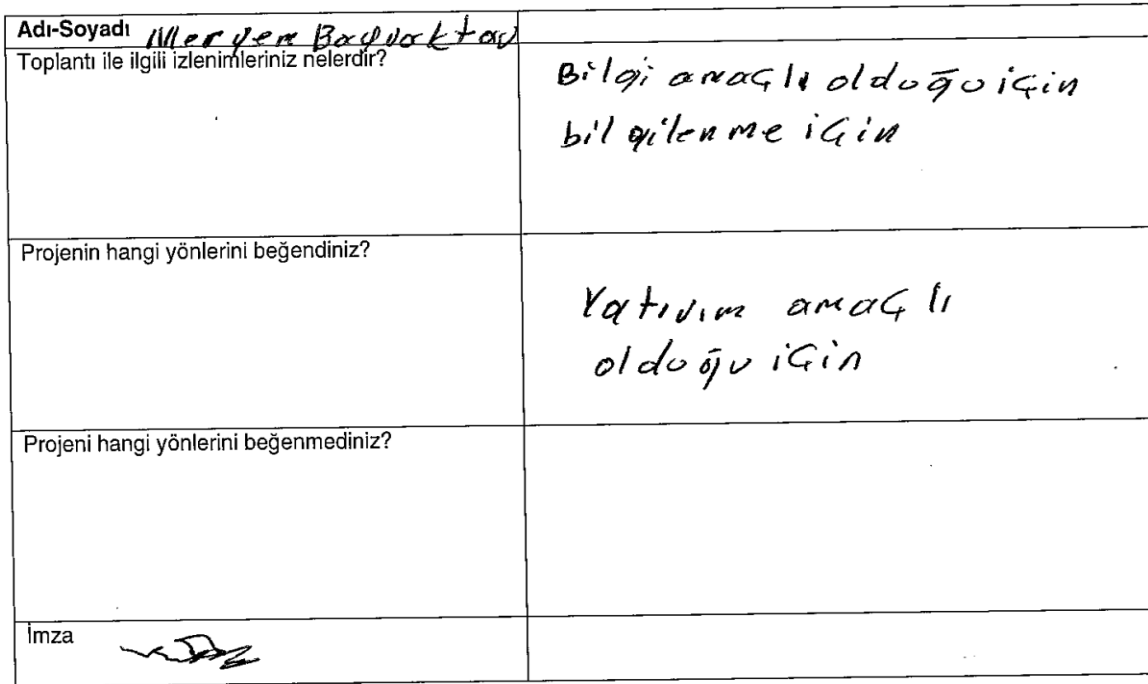 Adı-Soyadı Meryem Bayraktar
Toplantı ile ilgili izlenimleriniz nelerdir?
Bilgi amaçlı olduğu için
bilgilenme için
Projenin hangi yönlerini beğendiniz?
Yatırım amaçlı
olduğu için
Projeni hangi yönlerini beğenmediniz?
İmza